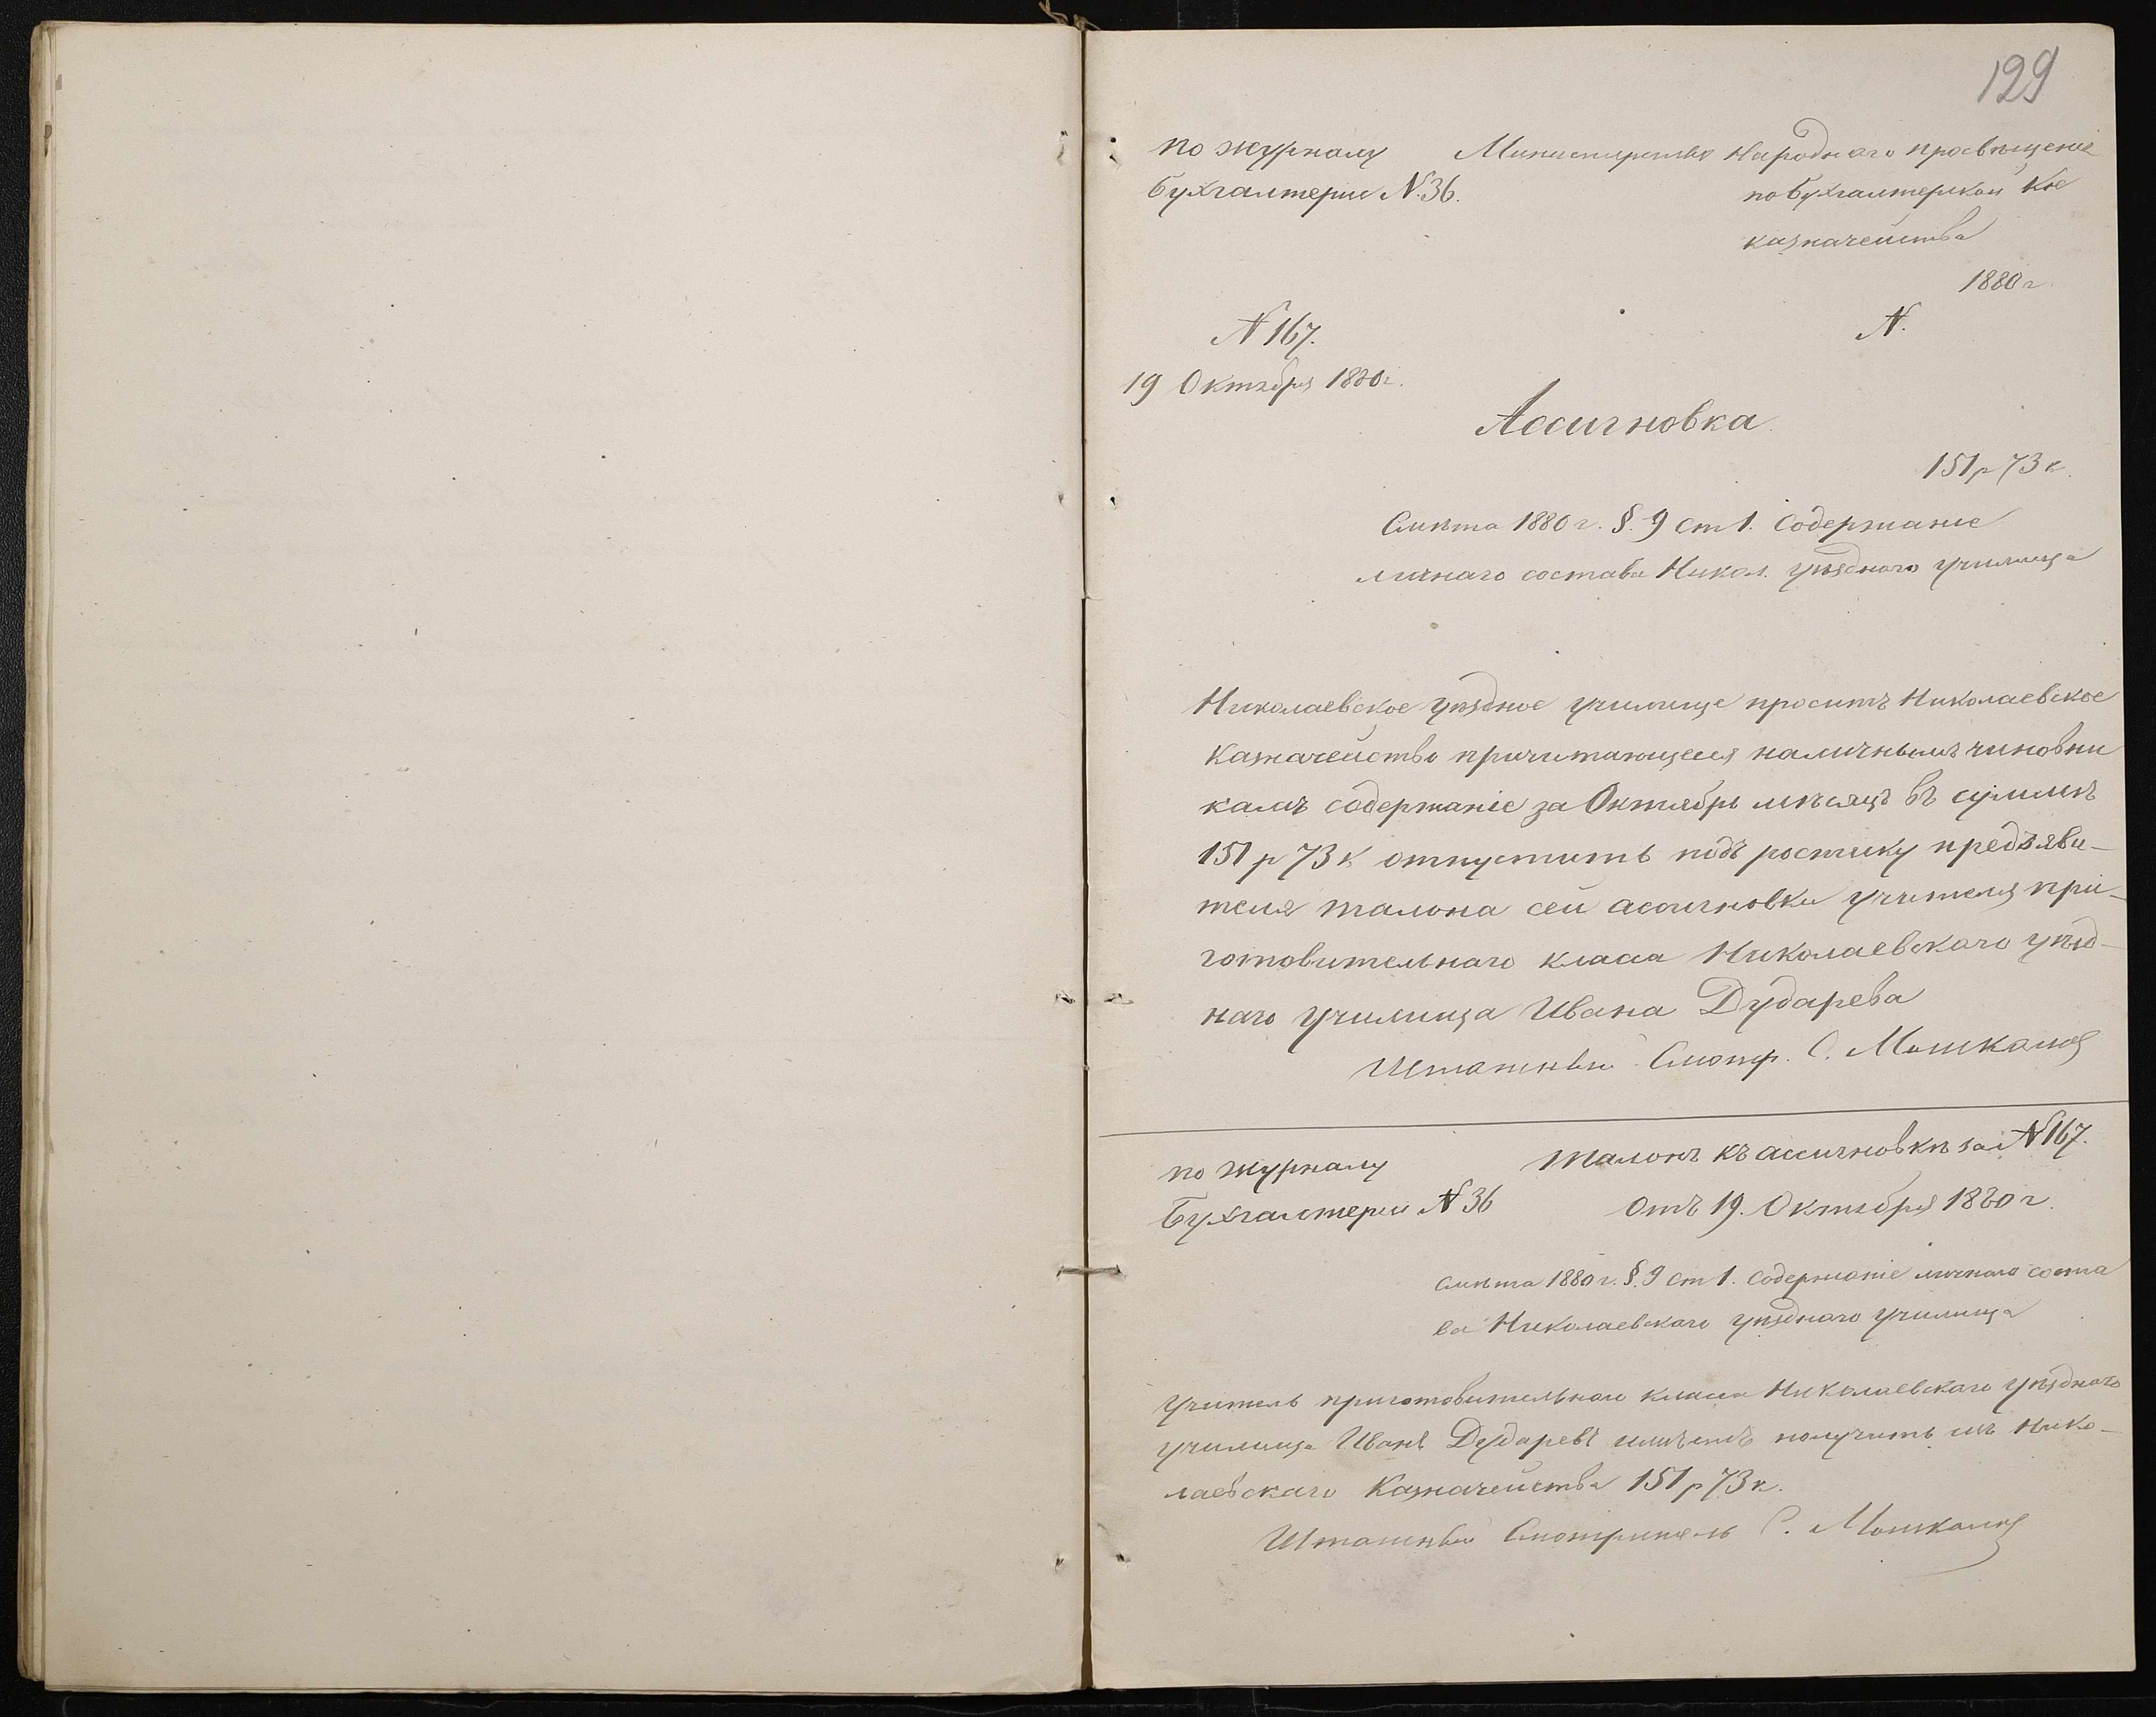 129
по журналу
Бухгалтеріи №. 36.
Министерство Народнаго просвѣщенія
по Бухгалтерской кнѣ
казначейства
1880 г.
№.
№ 167.
19 Октября 1880 г.
Ассигновка.
151 р 73 к.
Смѣта 1880 г. §. 9 ст 1. Содержаніе
личнаго состава Никол. уѣзднаго училища
Николаевское уѣздное училище проситъ Николаевское
Казначейство причитающееся наличнымъ чиновни
камъ содержаніе за Октябрь мѣсяцъ въ суммѣ
151 р 73 к отпустить подъ росписку предъяви-
теля талона сей ассигновки учителя при-
готовительнаго класса Николаевскаго уѣзд-
наго училища Ивана Дударева
Штатный Смотр. С.
по журналу
Бухгалтеріи № 36
Талонъ къ ассигновкѣ за № 167.
Отъ 19. Октября 1880 г.
Смѣта 1880 г. §. 9 ст 1. Содержаніе личнаго соста
ва Николаевскаго уѣзднаго училища
Учитель приготовительнаго класса Николаевскаго уѣзднаго
училища Иванъ Дударевъ имѣетъ получить изъ Нико-
лаевскаго Казначейства 151 р 73 к.
Штатный Смотритель С.